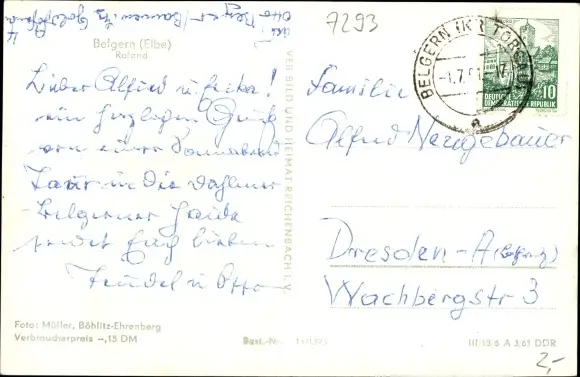 7293
Belgern (Elbe)
Roland
Lieber Alfred u.
ein herzlichen Gruß
von einer Sonnabend
Tour in die Dahlener
Belgerner Haide
sendet Euch lieben
u Otto
VERBILD UND HEIMAT REICHENBACH I. V.
BELGERN (KR TORGAU)
10
DEUTSCHE
DEMOKRATISCHE REPUBLIK
Familie
Alfred Neugebauer
Dresden-A
Wachbergstr 3
Foto: Müller, Böhlitz-Ehrenberg
Verbraucherpreis –,15 DM
Best.-Nr.
III/13/6 A 3/61 DDR
2,-